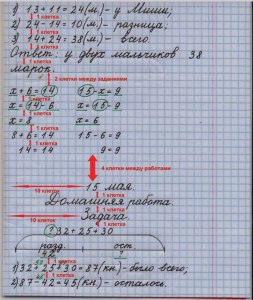 1) 13+11=24(м.)- у Миши;
1 клетка
2) 24-14=10(м.)- разница;
1 клетка
3) 14+24=38(м.)- всего.
1 клетка
Ответ: у двух мальчиков 38
1 клетка
марок.
2 клетки между заданиями
x+6=14 15-x=9
1 клетка 1 клетка
x=14-6 x=15-9
1 клетка 1 клетка
x=8 x=6
1 клетка
8+6=14 15-6=9
1 клетка
14=14 9=9
4 клетки между работами
10 клеток 15 мая.
1 клетка
Домашняя работа.
10 клеток 1 клетка
Задача.
1 клетка
? 32+25+30
разд. ост.
42 ?
1 клетка
1) 32+25+30=87(кн.)-было всего;
1 клетка
2) 87-42=45(кн.)- осталось.